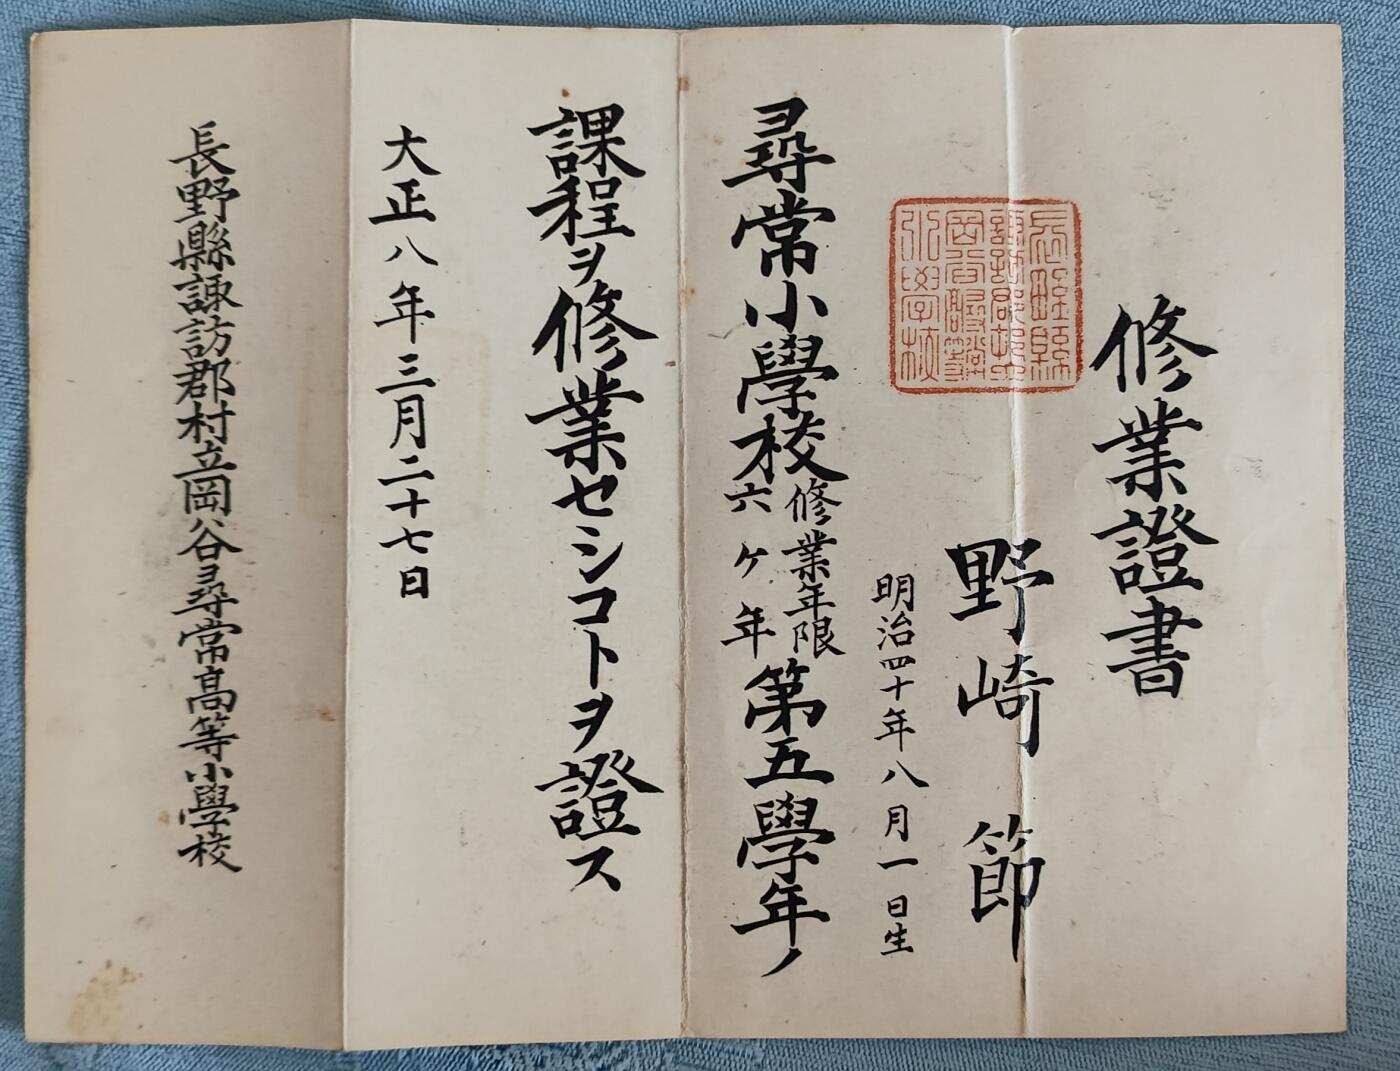 修業證書
野崎節
明治四十年八月一日生
尋常小學校修業年限六ヶ年第五學年ノ
課程ヲ修業セシコトヲ證ス
大正八年三月二十七日
長野縣諏訪郡村立岡谷尋常高等小學校
長野縣
諏訪郡村立
岡谷尋常高等
小學校